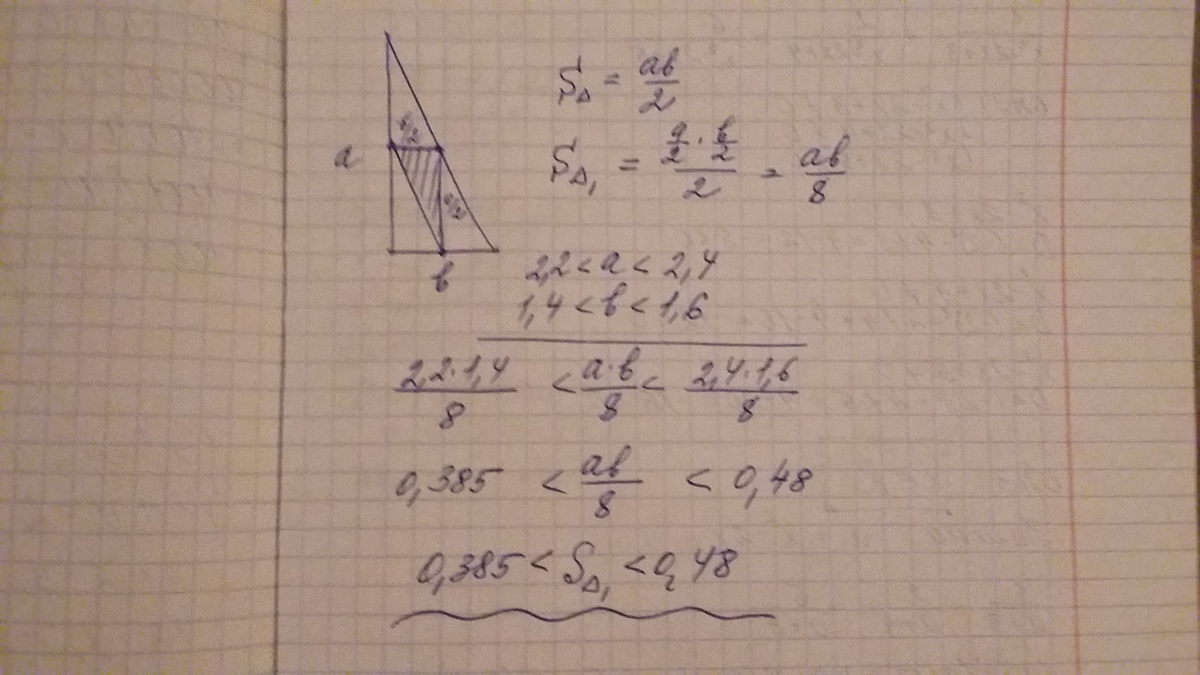 S△ = ab/2
a
b/2
S△₁ = (a/2 · b/2)/2 = ab/8
a/2
b
2,2 < a < 2,4
1,4 < b < 1,6
2,2·1,4/8 < a·b/8 < 2,4·1,6/8
0,385 < ab/8 < 0,48
0,385 < S△₁ < 0,48